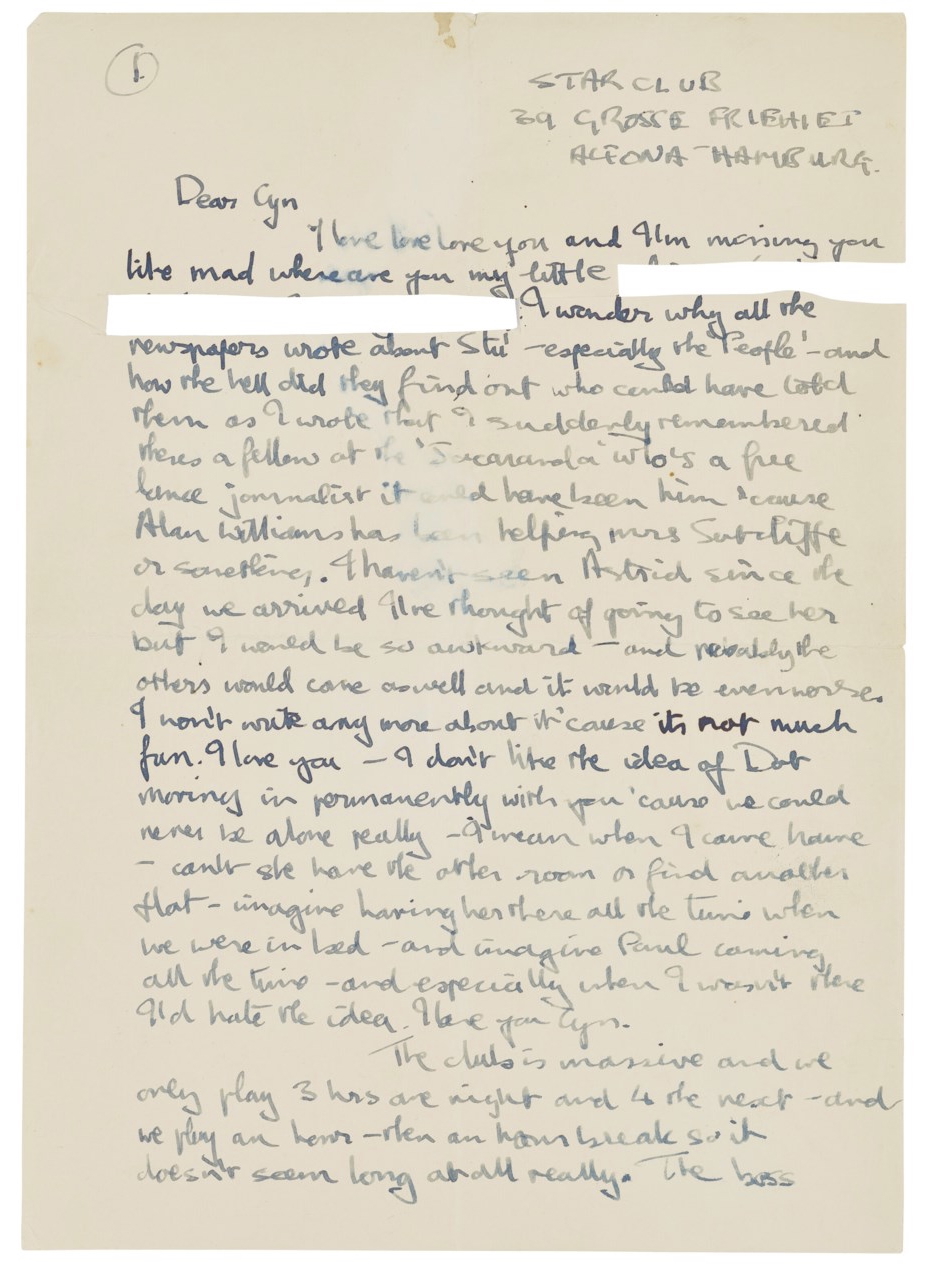 1.
STAR CLUB
39 GROSSE FRIEHIET
ALTONA-HAMBURG.
Dear Cyn
I love love love you and I'm missing you
like mad where are you my little
. I wonder why all the
newspapers wrote about Stu' - especially the 'People' - and
how the hell did they find out who could have told
them as I wrote that I suddenly remembered
theres a fellow at the 'Jacaranda' who's a free
lance journalist it could have been him 'cause
Alan Williams has been helping mrs Sutcliffe
or something. I haven't seen Astrid since the
day we arrived I've thought of going to see her
but I would be so awkward - and probably the
others would come aswell and it would be even worse.
I won't write any more about it 'cause its not much
fun. I love you - I don't like the idea of Dot
moving in permanently with you 'cause we could
never be alone really - I mean when I come home
- can't she have the other room or find another
flat - imagine having her there all the time when
we were in bed - and imagine Paul coming
all the time - and especially when I wasn't there
I'd hate the idea. I love you Cyn.
The club is massive and we
only play 3 hrs one night and 4 the next - and
we play an hour - then an hour break so it
doesn't seem long at all really. The boss